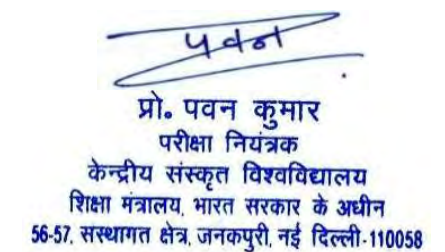 पवन
प्रो. पवन कुमार
परीक्षा नियंत्रक
केन्द्रीय संस्कृत विश्वविद्यालय
शिक्षा मंत्रालय, भारत सरकार के अधीन
56-57, संस्थागत क्षेत्र, जनकपुरी, नई दिल्ली-110058